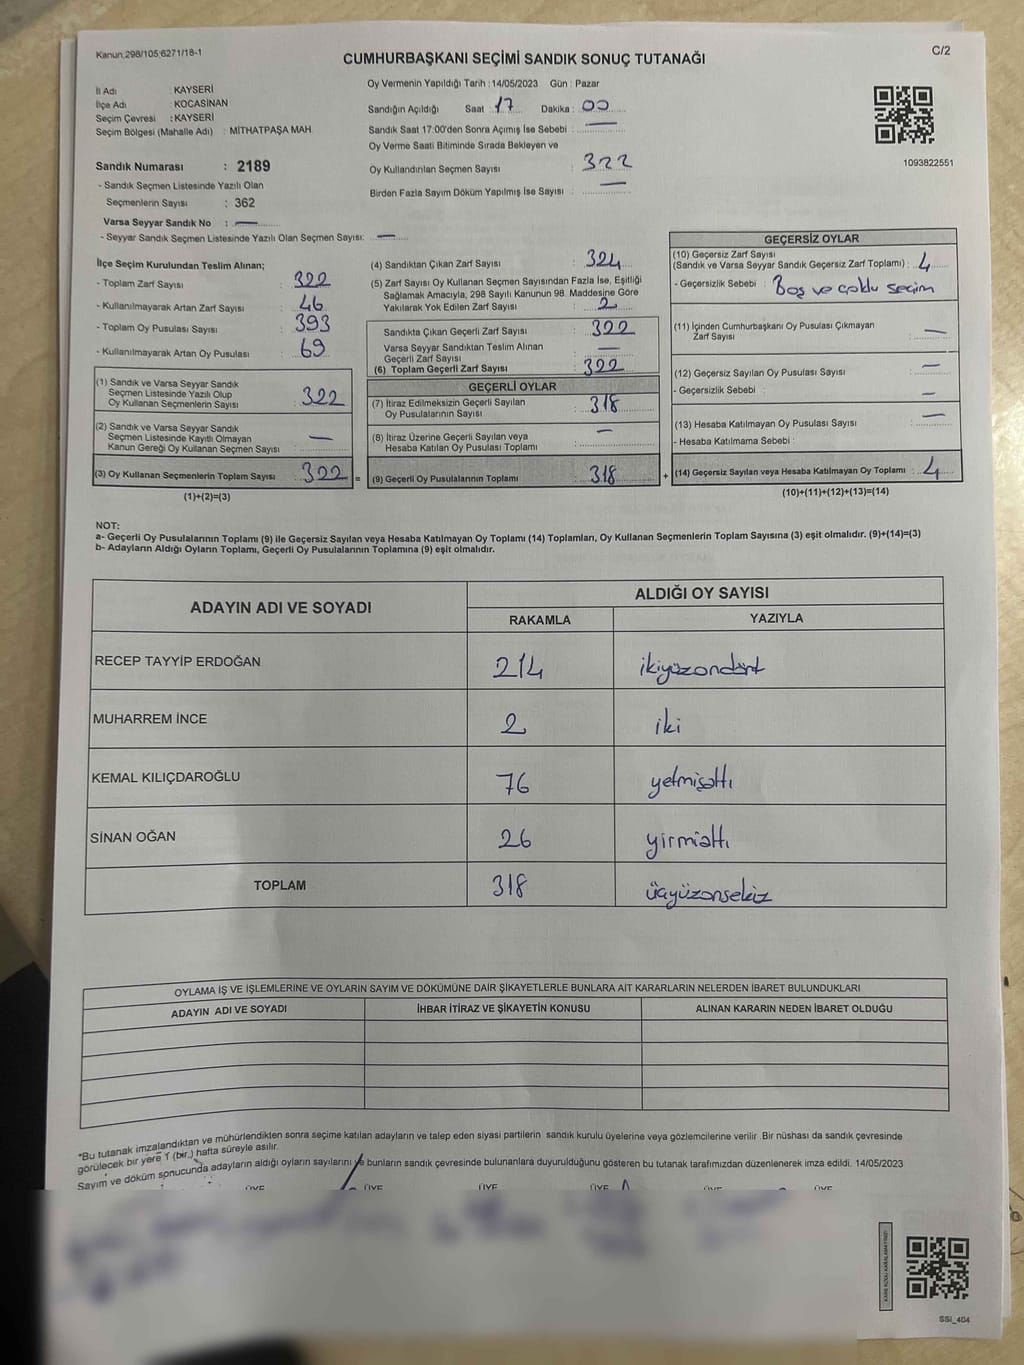 Kanun:298/105;6271/18-1
C/2
CUMHURBAŞKANI SEÇİMİ SANDIK SONUÇ TUTANAĞI
İl Adı : KAYSERİ
İlçe Adı : KOCASİNAN
Seçim Çevresi : KAYSERİ
Seçim Bölgesi (Mahalle Adı) : MİTHATPAŞA MAH.
Sandık Numarası : 2189
- Sandık Seçmen Listesinde Yazılı Olan
Seçmenlerin Sayısı : 362
Varsa Seyyar Sandık No : —
- Seyyar Sandık Seçmen Listesinde Yazılı Olan Seçmen Sayısı: —
Oy Vermenin Yapıldığı Tarih :14/05/2023 Gün : Pazar
Sandığın Açıldığı Saat : 17 Dakika : 00
Sandık Saat 17.00'den Sonra Açımış İse Sebebi : —
Oy Verme Saati Bitiminde Sırada Bekleyen ve
Oy Kullandırılan Seçmen Sayısı : 322
Birden Fazla Sayım Döküm Yapılmış İse Sayısı : —
1093822551
İlçe Seçim Kurulundan Teslim Alınan;
- Toplam Zarf Sayısı : 322
- Kullanılmayarak Artan Zarf Sayısı : 46
- Toplam Oy Pusulası Sayısı : 393
- Kullanılmayarak Artan Oy Pusulası : 69
(1) Sandık ve Varsa Seyyar Sandık
Seçmen Listesinde Yazılı Olup
Oy Kullanan Seçmenlerin Sayısı : 322
(2) Sandık ve Varsa Seyyar Sandık
Seçmen Listesinde Kayıtlı Olmayan
Kanun Gereği Oy Kullanan Seçmen Sayısı : —
(3) Oy Kullanan Seçmenlerin Toplam Sayısı : 322
(1)+(2)=(3)
(4) Sandıktan Çıkan Zarf Sayısı : 324
(5) Zarf Sayısı Oy Kullanan Seçmen Sayısından Fazla İse, Eşitliği
Sağlamak Amacıyla, 298 Sayılı Kanunun 98. Maddesine Göre
Yakılarak Yok Edilen Zarf Sayısı : 2
Sandıkta Çıkan Geçerli Zarf Sayısı : 322
Varsa Seyyar Sandıktan Teslim Alınan
Geçerli Zarf Sayısı : —
(6) Toplam Geçerli Zarf Sayısı : 322
GEÇERLİ OYLAR
(7) İtiraz Edilmeksizin Geçerli Sayılan
Oy Pusulalarının Sayısı : 318
(8) İtiraz Üzerine Geçerli Sayılan veya
Hesaba Katılan Oy Pusulası Toplamı : —
= (9) Geçerli Oy Pusulalarının Toplamı : 318
GEÇERSİZ OYLAR
(10) Geçersiz Zarf Sayısı
(Sandık ve Varsa Seyyar Sandık Geçersiz Zarf Toplamı) : 4
- Geçersizlik Sebebi : Boş ve çoklu seçim
(11) İçinden Cumhurbaşkanı Oy Pusulası Çıkmayan
Zarf Sayısı : —
(12) Geçersiz Sayılan Oy Pusulası Sayısı : —
- Geçersizlik Sebebi : —
(13) Hesaba Katılmayan Oy Pusulası Sayısı : —
- Hesaba Katılmama Sebebi :
+ (14) Geçersiz Sayılan veya Hesaba Katılmayan Oy Toplamı : 4
(10)+(11)+(12)+(13)=(14)
NOT:
a- Geçerli Oy Pusulalarının Toplamı (9) ile Geçersiz Sayılan veya Hesaba Katılmayan Oy Toplamı (14) Toplamları, Oy Kullanan Seçmenlerin Toplam Sayısına (3) eşit olmalıdır. (9)+(14)=(3)
b- Adayların Aldığı Oyların Toplamı, Geçerli Oy Pusulalarının Toplamına (9) eşit olmalıdır.
ADAYIN ADI VE SOYADI
ALDIĞI OY SAYISI
RAKAMLA YAZIYLA
RECEP TAYYİP ERDOĞAN 214 ikiyüzondört
MUHARREM İNCE 2 iki
KEMAL KILIÇDAROĞLU 76 yetmişaltı
SİNAN OĞAN 26 yirmialtı
TOPLAM 318 üçyüzonsekiz
OYLAMA İŞ VE İŞLEMLERİNE VE OYLARIN SAYIM VE DÖKÜMÜNE DAİR ŞİKAYETLERLE BUNLARA AİT KARARLARIN NELERDEN İBARET BULUNDUKLARI
ADAYIN ADI VE SOYADI İHBAR İTİRAZ VE ŞİKAYETİN KONUSU ALINAN KARARIN NEDEN İBARET OLDUĞU
*Bu tutanak imzalandıktan ve mühürlendikten sonra seçime katılan adayların ve talep eden siyasi partilerin sandık kurulu üyelerine veya gözlemcilerine verilir .Bir nüshası da sandık çevresinde
görülecek bir yere 1 (bir.) hafta süreyle asılır.
Sayım ve döküm sonucunda adayların aldığı oyların sayılarını ve bunların sandık çevresinde bulunanlara duyurulduğunu gösteren bu tutanak tarafımızdan düzenlenerek imza edildi. 14/05/2023
ÜYE ÜYE ÜYE ÜYE ÜYE ÜYE
SSI_404